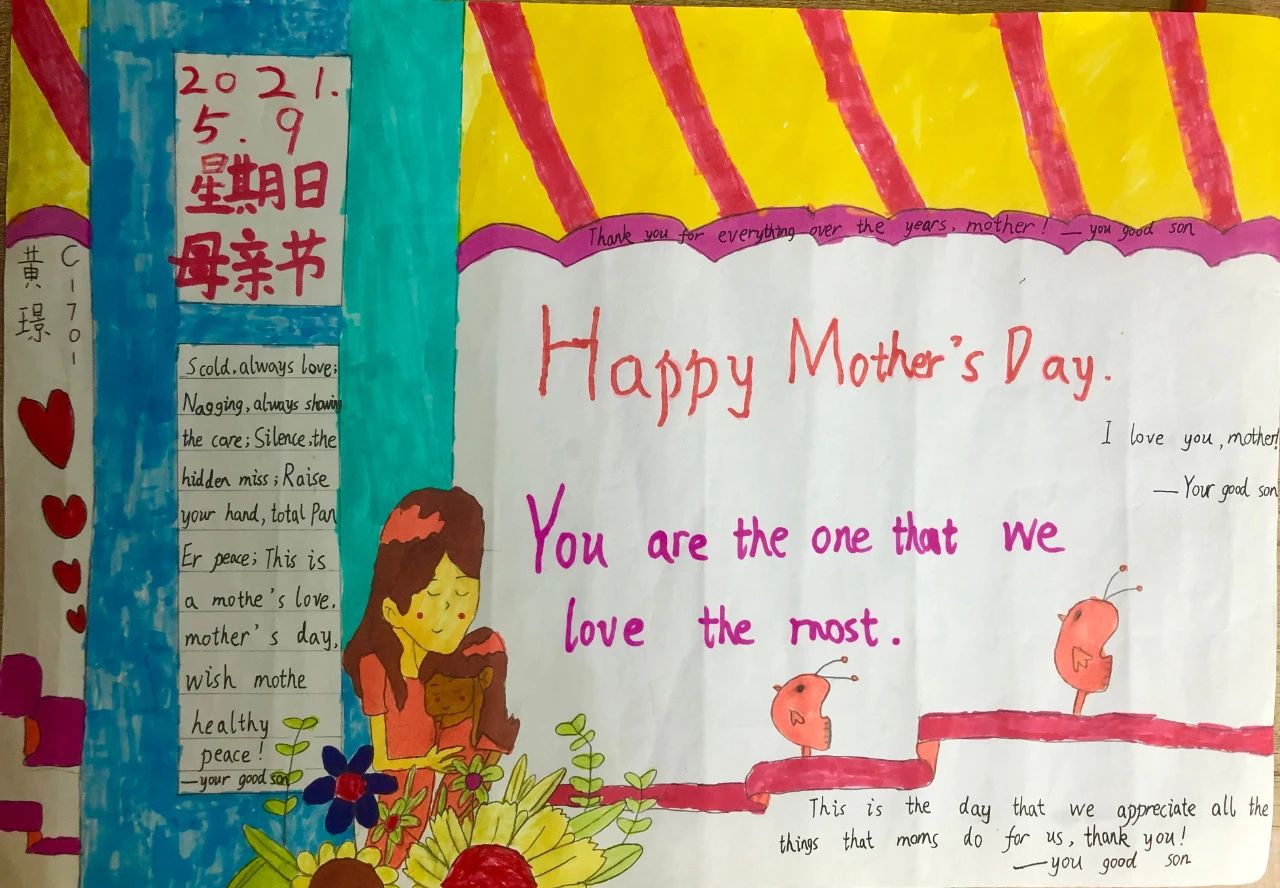 2021.
5.9
星期日
母亲节
黄璟
C1701
Scold,always love;
Nagging,always showing
the care; Silence,the
hidden miss; Raise
your hand, total Pan
Er peace; This is
a mothe's love,
mother's day,
wish mothe
healthy
peace!
—your good son
Thank you for everything over the years, mother! — you good son
Happy Mother's Day.
I love you, mother!
—Your good son
You are the one that we
love the most.
This is the day that we appreciate all the
things that moms do for us, thank you!
—you good son